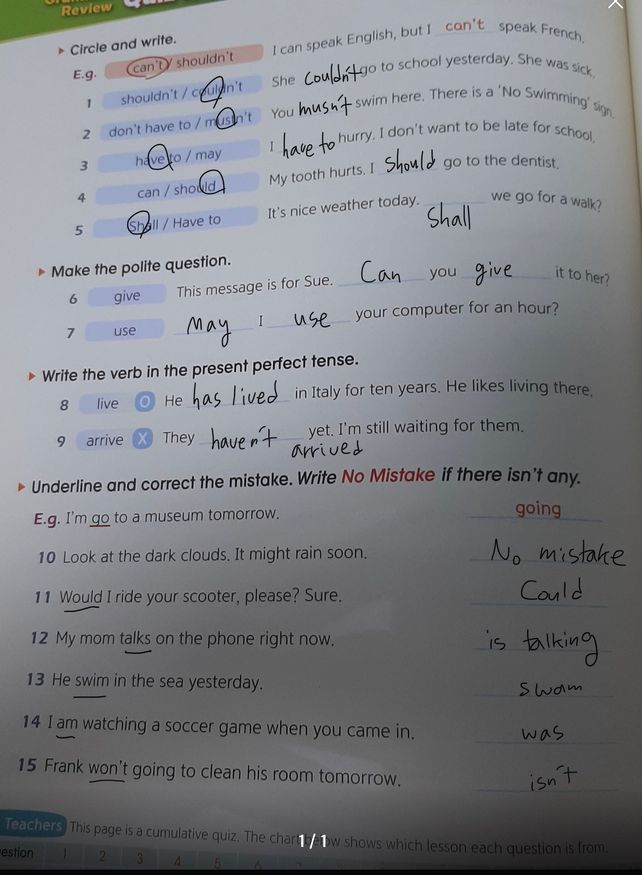 Review
▸ Circle and write.
E.g. can't / shouldn't I can speak English, but I can't speak French.
1 shouldn't / couldn't She couldn't go to school yesterday. She was sick.
2 don't have to / mustn't You musn't swim here. There is a 'No Swimming' sign.
3 have to / may I have to hurry. I don't want to be late for school.
4 can / should My tooth hurts. I should go to the dentist.
5 Shall / Have to It's nice weather today. Shall we go for a walk?
▸ Make the polite question.
6 give This message is for Sue. Can you give it to her?
7 use May I use your computer for an hour?
▸ Write the verb in the present perfect tense.
8 live O He has lived in Italy for ten years. He likes living there.
9 arrive X They haven't arrived yet. I'm still waiting for them.
▸ Underline and correct the mistake. Write No Mistake if there isn't any.
E.g. I'm go to a museum tomorrow. going
10 Look at the dark clouds. It might rain soon. No mistake
11 Would I ride your scooter, please? Sure. Could
12 My mom talks on the phone right now. is talking
13 He swim in the sea yesterday. swam
14 I am watching a soccer game when you came in. was
15 Frank won't going to clean his room tomorrow. isn't
Teachers This page is a cumulative quiz. The chart below shows which lesson each question is from.
1/1
estion 1 2 3 4 5 6